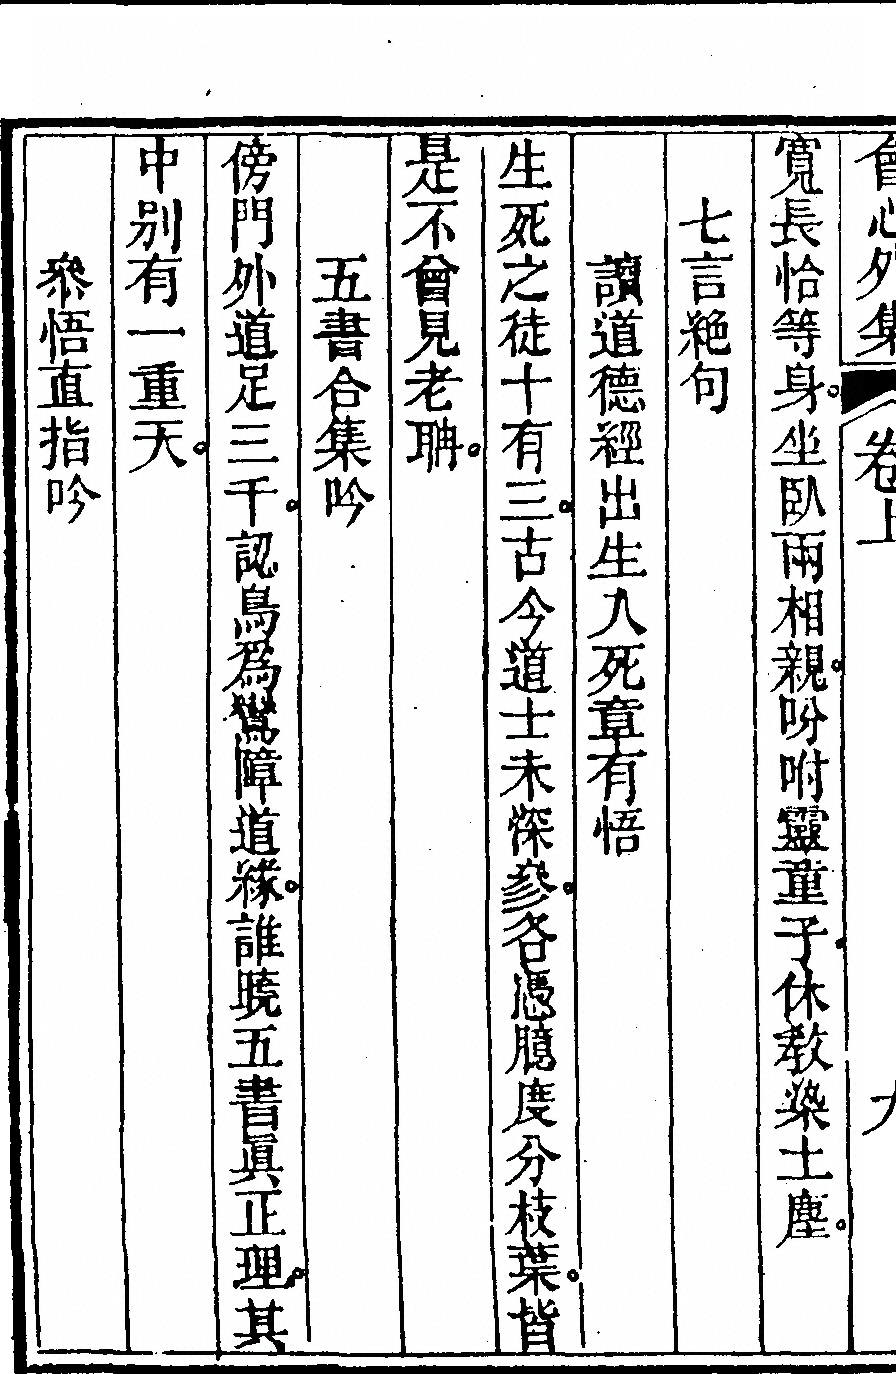 會心外集 卷上
寬長恰等身。坐臥兩相親。吩咐靈童子。休教染土塵。
七言絶句
讀道德經出生入死章有悟
生死之徒十有三。古今道士未深參。各憑臆度分枝葉。皆
是不曾見老聃。
五書合集吟
傍門外道足三千。認鳥爲鸞障道緣。誰曉五書眞正理。其
中別有一重天。
參悟直指吟